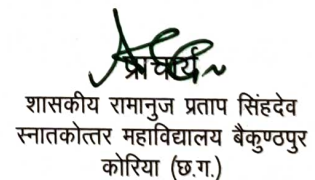 प्राचार्य
शासकीय रामानुज प्रताप सिंहदेव
स्नातकोत्तर महाविद्यालय बैकुण्ठपुर
कोरिया (छ.ग.)